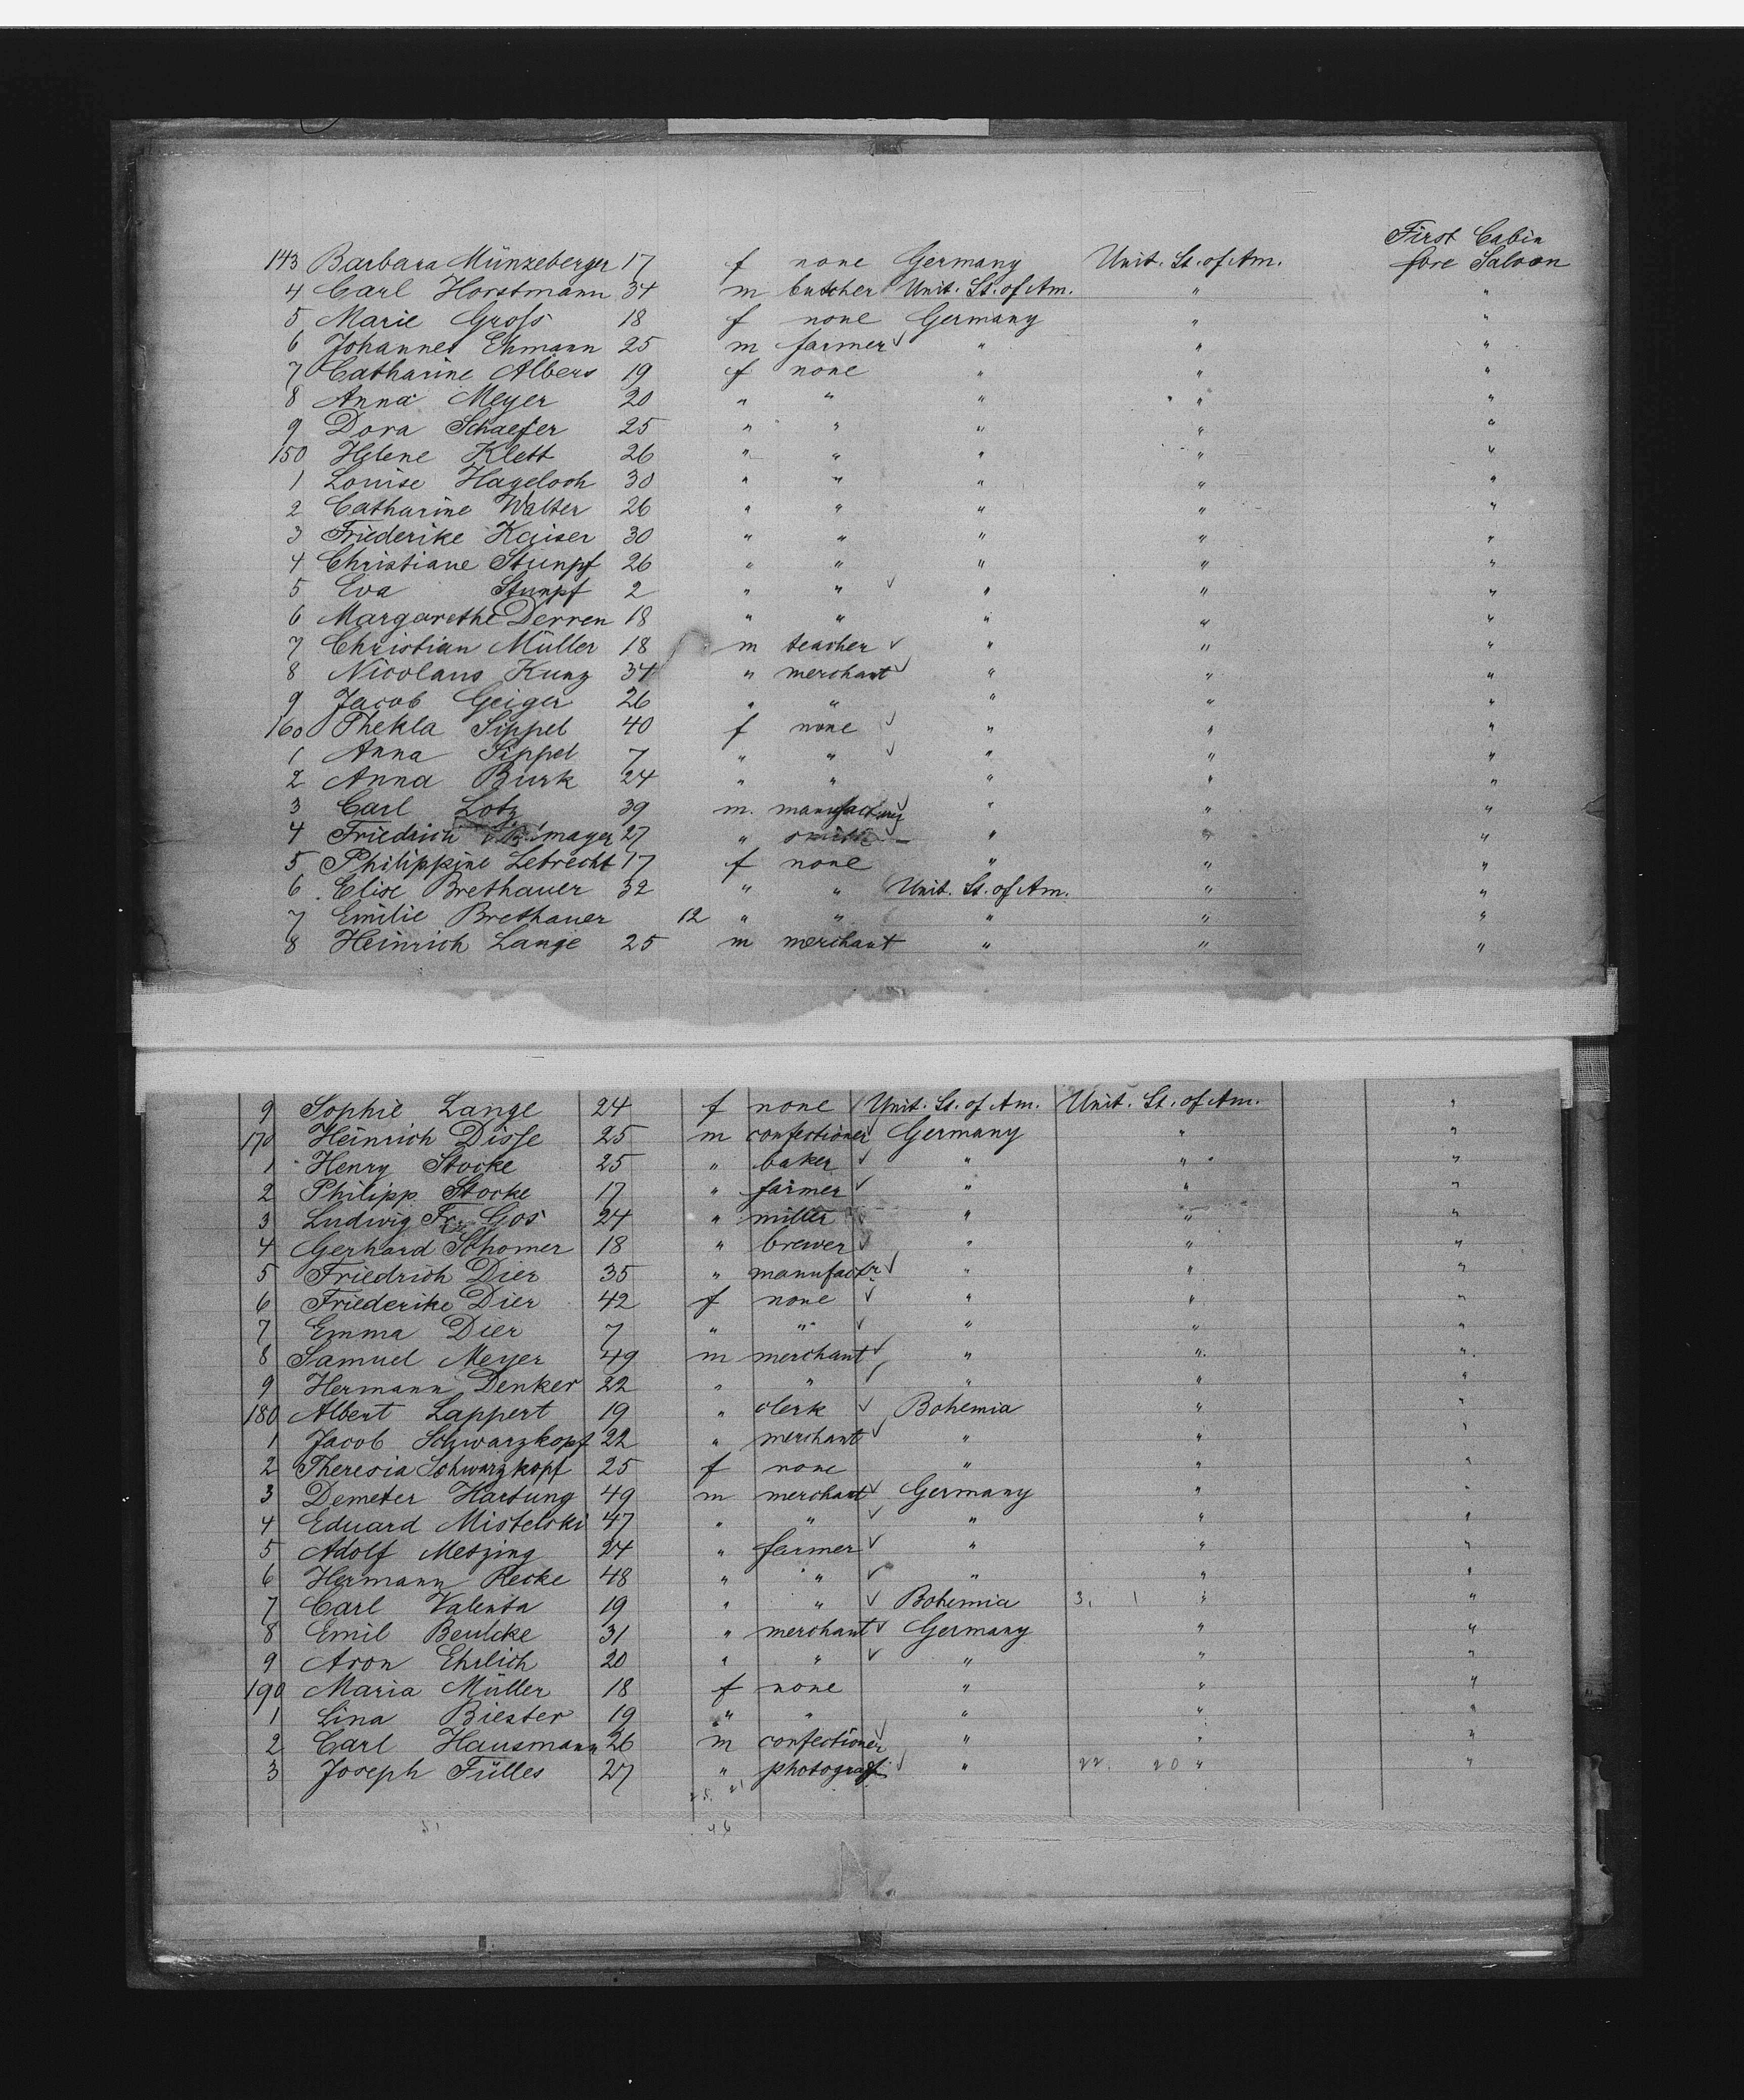 First Cabin
143 Barbara Münzeberger 17 f none Germany Unit. St. of Am. fore Saloon
4 Carl Horstmann 34 m butcher Unit. St. of Am. " "
5 Marie Gross 18 f none Germany " "
6 Johannes Ehmann 25 m farmer " " "
7 Catharine Albers 19 f none " " "
8 Anna Meyer 20 " " " " "
9 Dora Schaefer 25 " " " " "
150 Helene Klett 26 " " " " "
1 Louise Hageloch 30 " " " " "
2 Catharine Walter 26 " " " " "
3 Friederike Kaiser 30 " " " " "
4 Christiane Stumpf 26 " " " " "
5 Eva Stumpf 2 " " " " "
6 Margarethe Derren 18 " " " " "
7 Christian Müller 18 m teacher " " "
8 Nicolaus Kunz 34 " merchant " " "
9 Jacob Geiger 26 " " " " "
160 Thekla Sippel 40 f none " " "
1 Anna Sippel 7 " " " " "
2 Anna Burk 24 " " " " "
3 Carl Lotz 39 m. " " "
4 Friedrich 27 " " " "
5 Philippine Lebrecht 17 f none " " "
6 Elise Brethauer 32 " " Unit. St. of Am. " "
7 Emilie Brethauer 12 " " " " "
8 Heinrich Lange 25 m merchant " " "
9 Sophie Lange 24 f none Unit. St. of Am. Unit. St. of Am. "
170 Heinrich Disse 25 m confectioner Germany " "
1 Henry Stocke 25 " baker " " "
2 Philipp Stocke 17 " farmer " " "
3 Ludwig Fr. Gos 24 " miller " " "
4 Gerhard Schomer 18 " brewer " " "
5 Friedrich Dier 35 " manufactr " " "
6 Friederike Dier 42 f none " " "
7 Emma Dier 7 " " " " "
8 Samuel Meyer 49 m merchant " " "
9 Hermann Denker 22 " " " " "
180 Albert Lappert 19 " clerk Bohemia " "
1 Jacob Schwarzkopf 22 " merchant " " "
2 Theresia Schwarzkopf 25 f none " " "
3 Demeter Hartung 49 m merchant Germany " "
4 Eduard Mistelski 47 " " " " "
5 Adolf Metzing 24 " farmer " " "
6 Hermann Recke 48 " " " " "
7 Carl Valenta 19 " " Bohemia 3. 1 " "
8 Emil Beulcke 31 " merchant Germany " "
9 Aron Ehrlich 20 " " " " "
190 Maria Müller 18 f none " " "
1 Lina Biester 19 " " " " "
2 Carl Hausmann 26 m confectioner " " "
3 Joseph Fülles 27 " photograf " 22. 20 " "